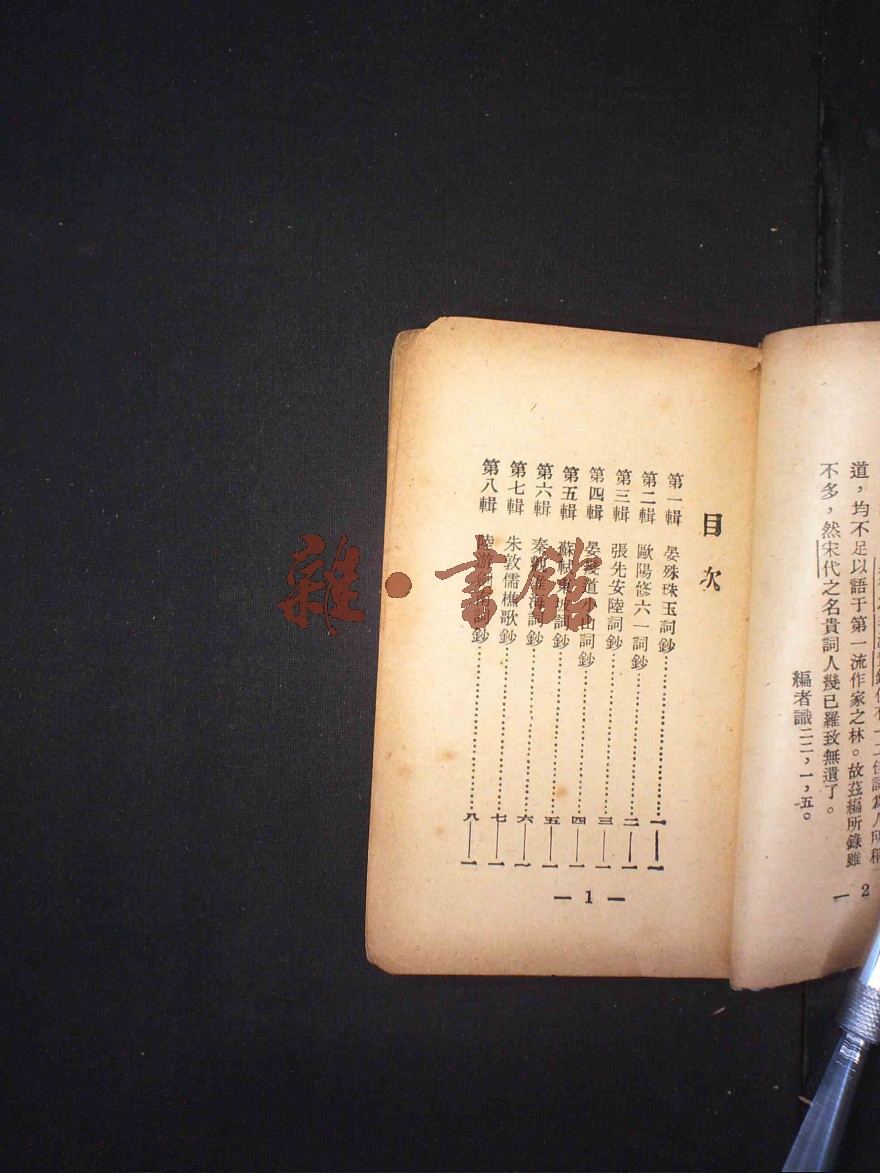 道，均不足以語于第一流作家之林。故茲編所錄雖
不多，然宋代之名貴詞人幾已羅致無遺了。
編者識二二，一，五。
一 2
目次
第一輯 晏殊珠玉詞鈔 一——一
第二輯 歐陽修六一詞鈔 二——一
第三輯 張先安陸詞鈔 三——一
第四輯 晏幾道小山詞鈔 四——一
第五輯 蘇軾東坡詞鈔 五——一
第六輯 秦觀淮海詞鈔 六——一
第七輯 朱敦儒樵歌鈔 七——一
第八輯 陸游 詞鈔 八——一
— 1 —
雜·書館